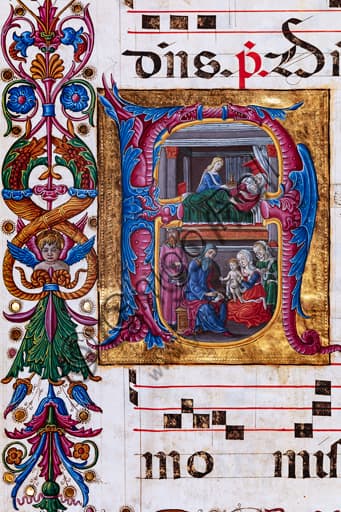 dñs. p̃. Di
mo miſ